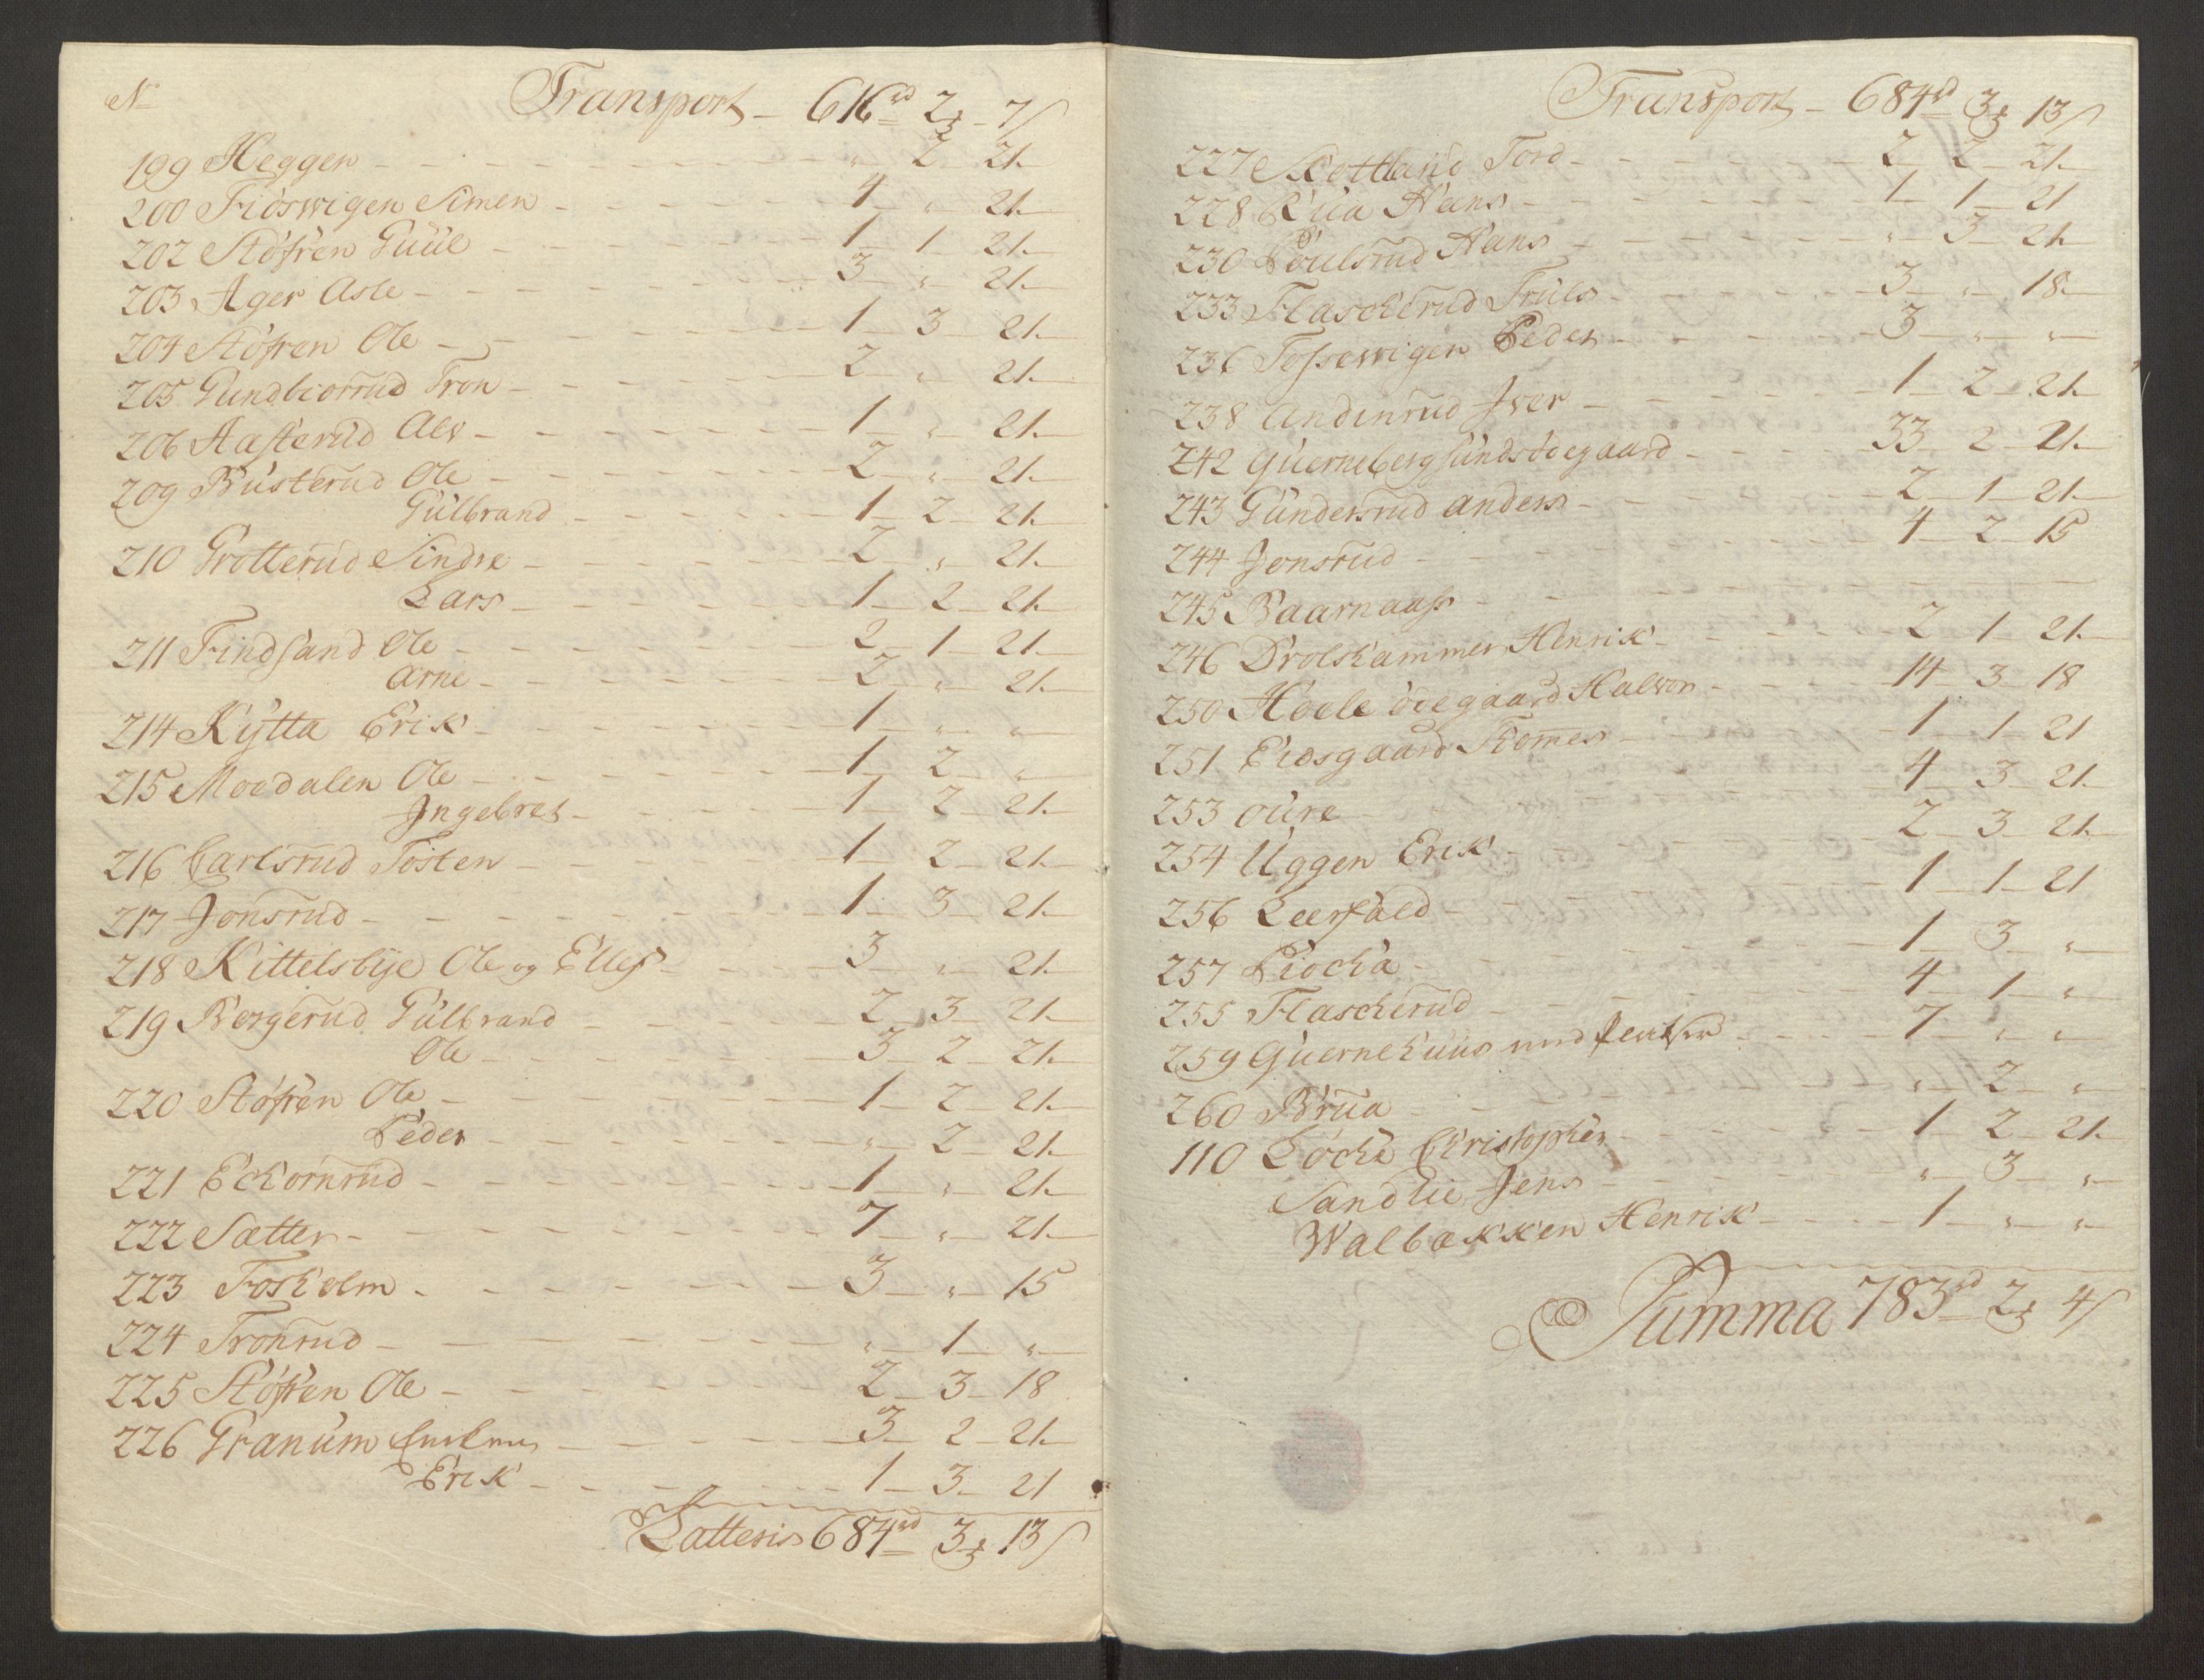 No
Transport - 616rd 2 - 7
199 Heggen - " 2 21
200 Fidswigen Simen - 4 " 21
202 Støfren Guul - 1 1 21
203 Ager Asle - 3 " 21
204 Støfren Ole - 1 3 21
205 Gundbiorrud Tron - 2 " 21
206 Aasterud Alv - 1 " 21
209 Busterud Ole - 2 " 21
Gulbrand - 1 2 21
210 Grotterud Sindre - 2 " 21
Lars - 1 2 21
211 Findsand Ole - 2 1 21
Arne - 2 " 21
214 Kÿtta Erik - 1 " "
215 Moedalen Ole - 1 2 "
Jngebret - 1 2 21
216 Carlsrud Tosten - 1 2 21
217 Jonsrud - 1 3 21
218 Kittelsbye Ole og Ellef - 3 " 21
219 Bergerud Gulbrand - 2 3 21
Ole - 3 2 21
220 Støfren Ole - 1 2 21
Peder - " 2 21
221 Eckornrud - 1 " 21
222 Sætter - 7 " 21
223 Fosholm - 3 " 15
224 Tronrud - " 1 "
225 Støfren Ole - 2 3 18
226 Granum - 3 2 21
Erik - 1 3 21
Latteris 684rd 3 13
Transport - 684rd 3 13
227 Skottland Tord - 2 2 21
228 Rua Hans - 1 1 21
230 Poulsrud Hans - " 3 21
233 Flascherud Truls - 3 " 18
236 Fossewigen Peder - 3 " "
238 Andinrud Jver - 1 2 21
242 Guernebergsundsdegaard - 33 2 21
243 Gundersrud Anders - 2 1 21
244 Jonsrud - 4 2 15
245 Baarnaas -
246 Drolshammer Henrik - 2 1 21
250 Hoele ødegaard Halvor - 14 3 18
251 Eidsgaard Tomes - 1 1 21
253 Oure - 4 3 21
254 Uggen Erik - 2 3 21
256 Leerfald - 1 1 21
257 Piocha - 1 3 "
255 Flascherud - 4 1 "
259 Guernehuus med - 7 " "
260 Brua - " 2 "
110 Loche Christopher - 1 2 21
Sandlie Jens - " 3 "
Walbækken Henrik - 1 " "
Summa 783rd 2 4